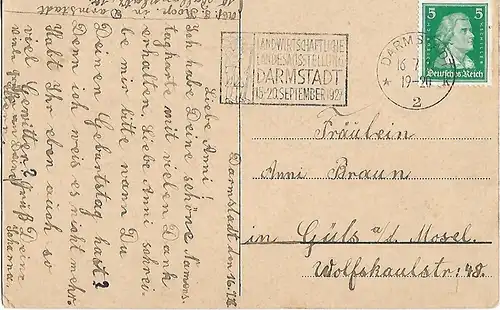 Darmstadt den 16. VII
Liebe Anni!
Ich habe Deine schöne Namens-
tagkarte mit vielen Dank
erhalten, Liebe Anni schrei-
be mir bitte wann Du
Deinen Geburtstag hast?
Denn ich weis es nicht mehr.
Habt Ihr eben auch so
viel Gewitter? Gruß Deine
Johanna.
Darmstadt
LANDWIRTSCHAFTLICHE
LANDESAUSSTELLUNG
DARMSTADT
15-20. SEPTEMBER 1927
DARMS
16.7.
19-20
2
5 5
Deutsches Reich
Fräulein
Anni Braun
in Güls a/d. Mosel.
Wolfskaulstr: 48.